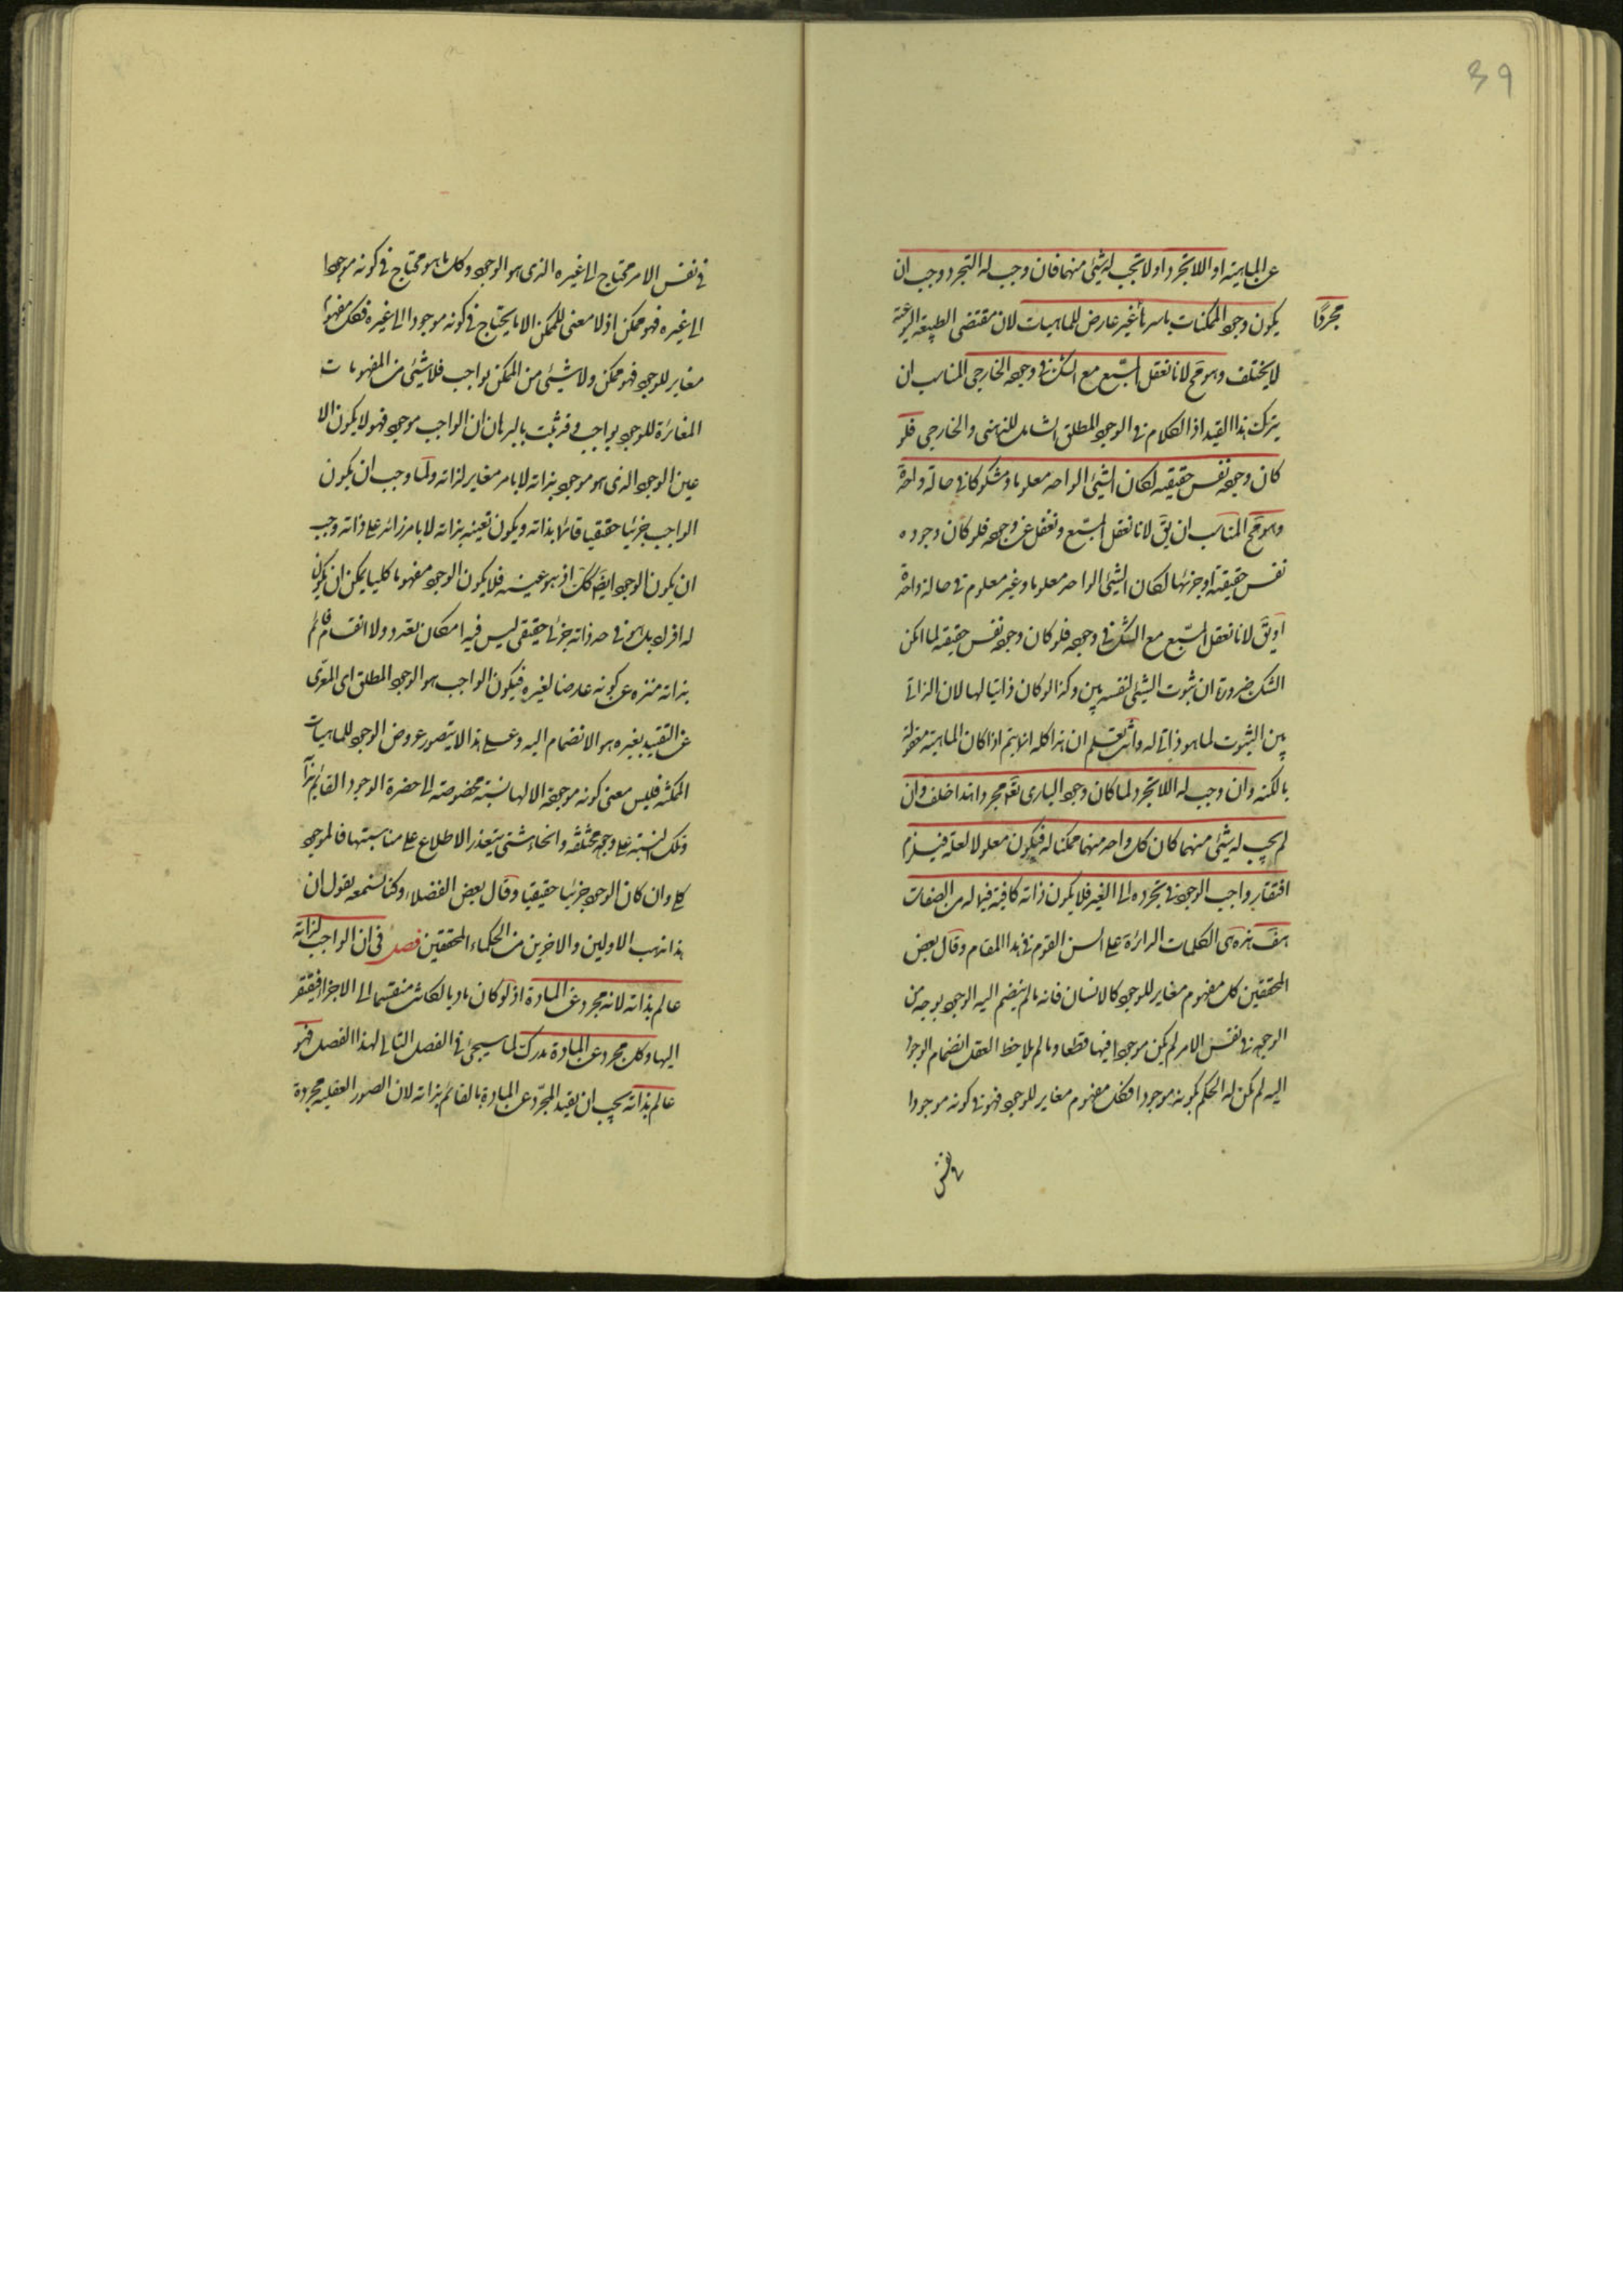 39
عن الماهية او اللاتجرد او لا يجب له شيئ منهما فان وجب له التجرد وجب ان
يكون وجود الممكنات باسرها غير عارض للماهيات لان مقتضى الطبيعة النوعية
مجردًا
لا يختلف وهو مح لانا نعقل المسبع مع الشك في وجوده الخارجي المناسب ان
يترك هذا القيد اذ الكلام في الوجود المطلق الشامل للذهني والخارجي فلو
كان وجوده نفس حقيقته لكان الشيئ الواحد معلوما ومشكوكا في حالة واحدة
وهو مح المناسب ان يق لانا نعقل المسبع ونغفل عن وجوده فلو كان وجوده
نفس حقيقته او جزئها لكان الشيئ الواحد معلوما وغير معلوم في حالة واحدة
او يق لانا نعقل المسبع مع الشك في وجوده فلو كان وجوده نفس حقيقته لما امكن
الشك ضرورة ان ثبوت الشيئ لنفسه بين وكذا لو كان ذاتيا لها لان الذاتي
بين الثبوت لما هو ذاتي له وانت تعلم ان هذا كله انما يتم اذا كان الماهية معقولة
بالكنه وان وجب له اللاتجرد لما كان وجود الباري تع مجردا هذا خلف وان
لم يجب له شيئ منهما كان كل واحد منهما ممكنا له فيكون معلولا لعلة فيلزم
افتقار واجب الوجود في تجرده الى الغير فلا يكون ذاته كافية فيما له من الصفات
هف هذه هى الكلمات الدائرة على السن القوم في هذا المقام وقال بعض
المحققين كل مفهوم مغاير للوجود كالانسان فانه ما لم ينضم اليه الوجود بوجه من
الوجوه في نفس الامر لم يكن موجودا فيها قطعا وما لم يلاحظ العقل انضمام الوجود
اليه لم يكن له الحكم بكونه موجودا فكل مفهوم مغاير للوجود فهو في كونه موجودا
في نفس
في نفس الامر محتاج الى غيره الذى هو الوجود وكل ما هو محتاج في كونه موجودا
الى غيره فهو ممكن اذ لا معنى للممكن الا ما يحتاج في كونه موجودا الى غيره فكل مفهوم
مغاير للوجود فهو ممكن ولا شيئ من الممكن بواجب فلا شيئ من المفهومات
المغائرة للوجود بواجب وقد ثبت بالبرهان ان الواجب موجود فهو لا يكون الا
عين الوجود الذى هو موجود بذاته لا بامر مغاير لذاته ولما وجب ان يكون
الواجب جزئيا حقيقيا قائما بذاته ويكون تعينه بذاته لا بامر زائد على ذاته وجب
ان يكون الوجود ايض كك اذ هو عينه فلا يكون الوجود مفهوما كليا يمكن ان يكون
له افراد بل هو في حد ذاته جزئي حقيقي ليس فيه امكان تعدد ولا انقسام قائم
بذاته منزه عن كونه عارضا لغيره فيكون الواجب هو الوجود المطلق اى المعرى
عن التقييد بغيره هو الانضمام اليه وعلى هذا لا يتصور عروض الوجود للماهيات
الممكنة فليس معنى كونه موجودة الا لها نسبة مخصوصة الى حضرة الوجود القائم بذاته
وتلك النسبة على وجوه مختلفة وانحاء شتى يتعذر الاطلاع على مناسبتها فالموجود
كلي وان كان الوجود جزئيا حقيقيا وقال بعض الفضلاء وكنا نسمعه يقول ان
هذا مذهب الاولين والاخرين من الحكماء المحققين فصل في ان الواجب لذاته
عالم بذاته لانه مجرد عن المادة اذ لو كان ماديا لكان منقسما الى الاجزاء فيفتقر
اليها وكل مجرد عن المادة مدرك لما سيجئ في الفصل التالي لهذا الفصل فهو
عالم بذاته يجب ان يقيد المجرد عن المادة بالقائم بذاته لان الصور العقلية مجردة